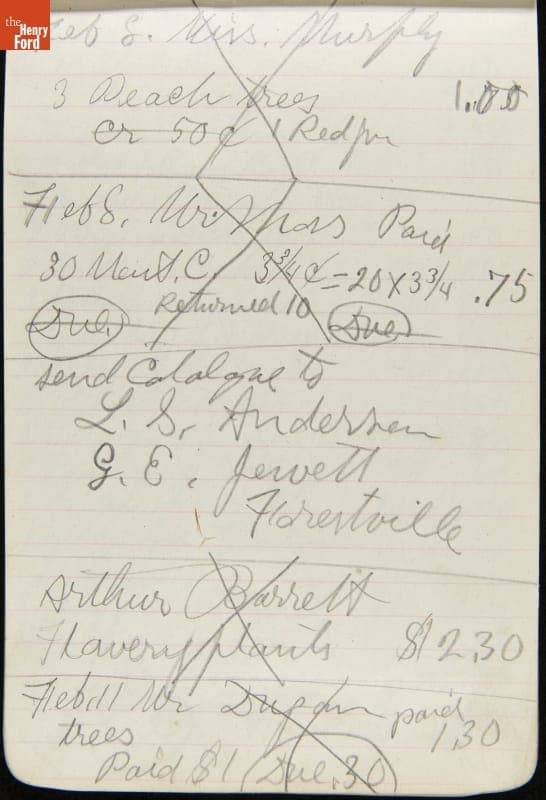 the Henry Ford
Feb 8. Miss. Murphy
3 Peach trees 1.00
cr 50¢ 1 Redfur
Feb 8, Mr. Moss Paid
30 S.C. 3 3/4 ¢ = 20 x 3 3/4 .75
Returned 10
Due Due
send Catalogue to
L. S. Andersen
G. E. Jewett
Forestville
Arthur Barrett
plants $12.30
Feb. 11 Mr Dugan paid
trees 1.30
Paid $1 Due .30